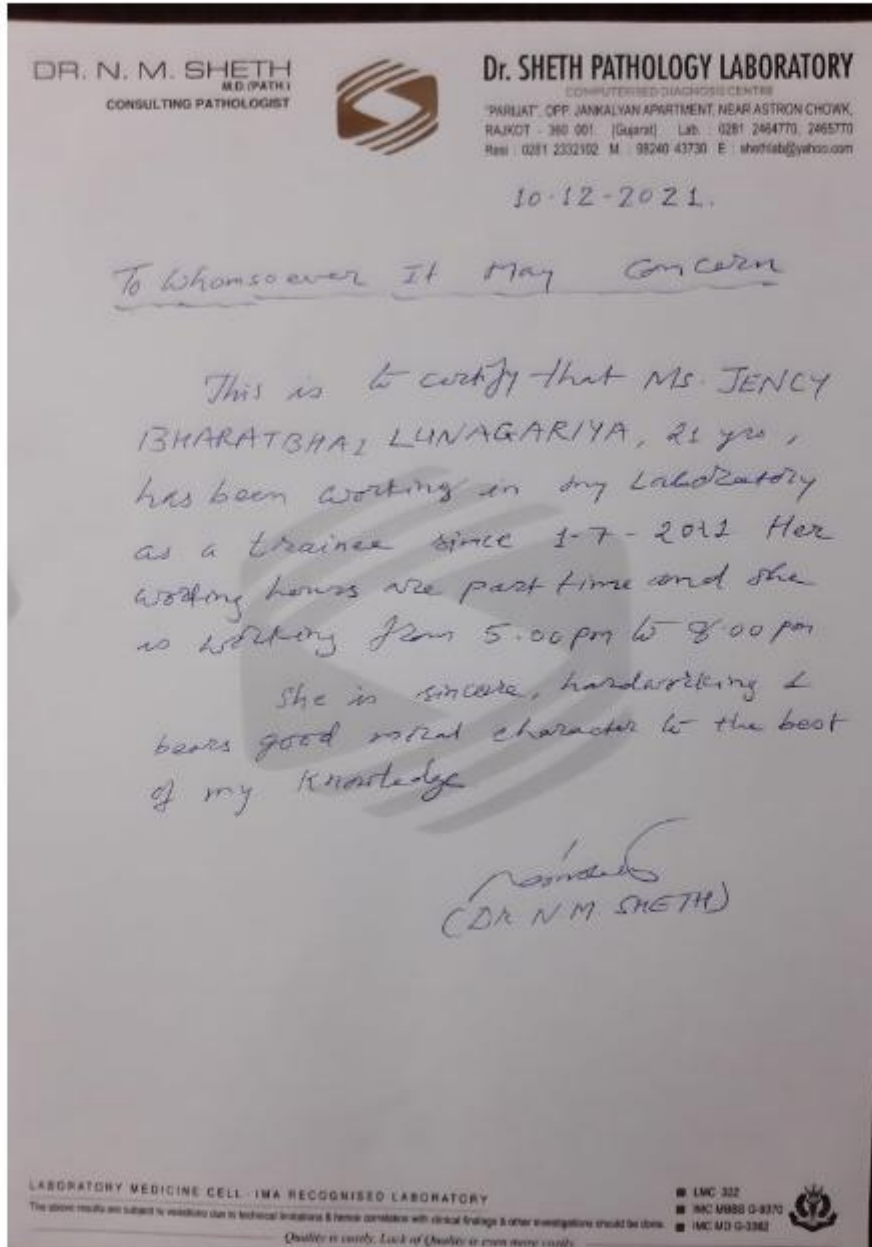 DR. N. M. SHETH
M.D. (PATH.)
CONSULTING PATHOLOGIST
Dr. SHETH PATHOLOGY LABORATORY
COMPUTERISED DIAGNOSIS CENTRE
"PARIJAT", OPP. JANKALYAN APARTMENT, NEAR ASTRON CHOWK,
RAJKOT - 360 001. (Gujarat) Lab. : 0281 2464770, 2465770
Resi : 0281 2332102 M : 98240 43730 E : shethlab@yahoo.com
10-12-2021.
To Whomsoever It May Concern
This is to certify that Ms. JENCY
BHARATBHAI LUNAGARIYA, 21 yrs,
has been working in my Laboratory
as a trainee since 1-7-2021 Her
working hours are part time and she
is working from 5.00 pm to 8.00 pm
She is sincere, hardworking &
bears good moral character to the best
of my knowledge
(DR N M SHETH)
LABORATORY MEDICINE CELL - IMA RECOGNISED LABORATORY
The above results are subject to variations due to technical limitations & hence correlation with clinical findings & other investigations should be done.
Quality is costly. Lack of Quality is even more costly.
LMC 322
IMC MBBS G-9370
IMC MD G-3362